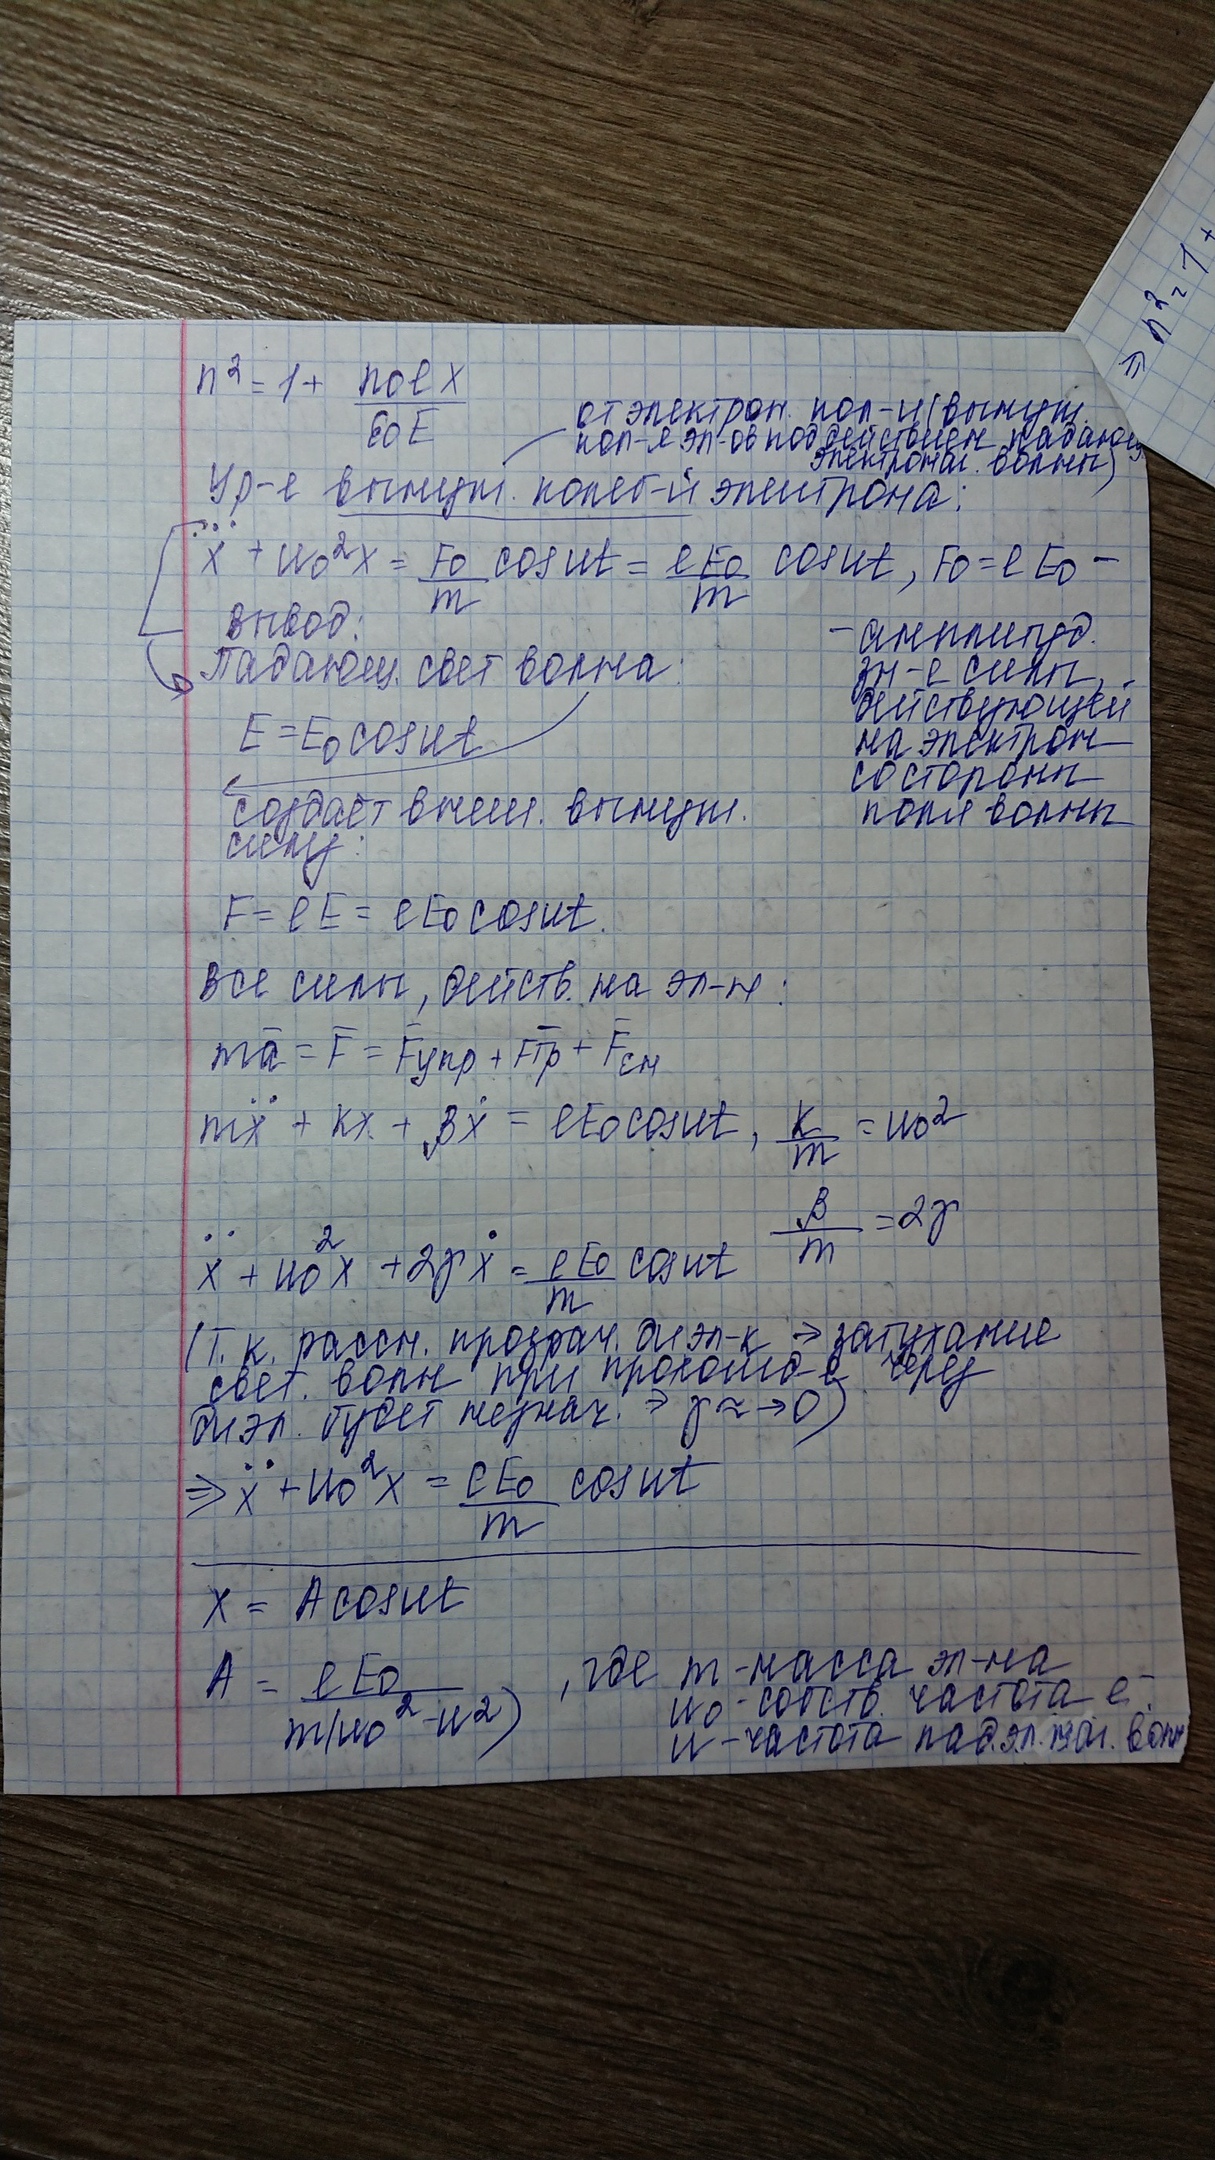 n² = 1 + n₀ex / ε₀E
от электрон. пол-и (вынужд.
кол-я эл-ов под действием падающ
электромаг. волны)
Ур-е вынужд. колеб-й электрона:
ẍ + ω₀²x = F₀/m cosωt = eE₀/m cosωt, F₀ = eE₀ –
вывод:
– амплитуд.
зн-е силы,
действующей
на электрон
со стороны
поля волны
Падающ. свет волна:
E = E₀cosωt
создаёт внеш. вынужд.
силу:
F = eE = eE₀cosωt.
Все силы, действ. на эл-н:
mā = F̄ = F̄упр + F̄тр + F̄ем
mẍ + kx + βẋ = eE₀cosωt, k/m = ω₀²
β/m = 2γ
ẍ + ω₀²x + 2γẋ = eE₀/m cosωt
(Т.к. рассм. прозрач. диэл-к → затухание
свет. волн при прохожд-е через
диэл. будет незнач. ⇒ γ ≈ → 0)
⇒ ẍ + ω₀²x = eE₀/m cosωt
x = Acosωt
A = eE₀ / m(ω₀² - ω²) , где m - масса эл-на
ω₀ - собств. частота e⁻.
ω - частота пад. эл. маг. волн
⇒ n² = 1 +